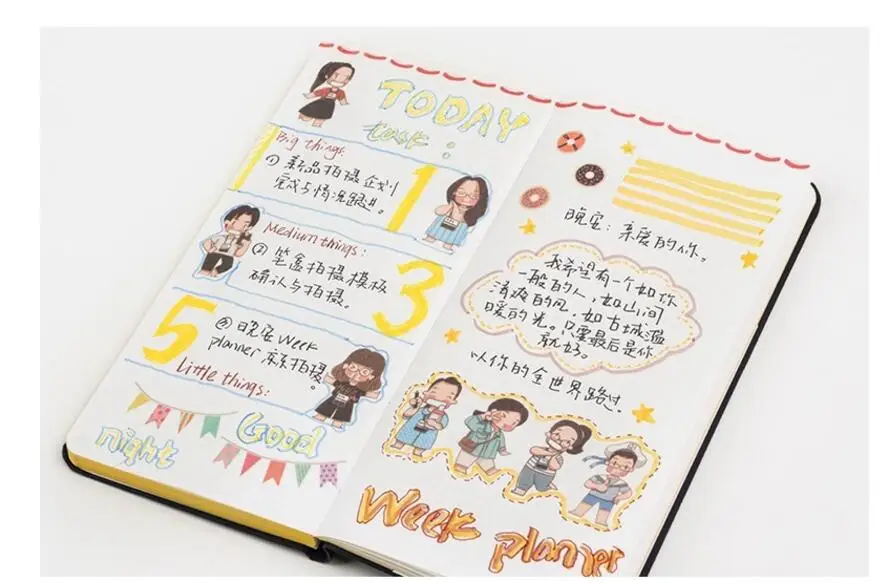 TODAY
task:
Big things:
① 新品拍摄企划
完成与情况跟进。
1
Medium things:
② 笔盒拍摄模板
确认与拍摄。
3
5
③ 晚安Week
planner 拍摄。
Little things:
Good
night
晚安：亲爱的你。
我希望有一个如你
一般的人，如山间
清爽的风，如古城温
暖的光。只要最后是你
就好。
以你的全世界路过.
Week planner